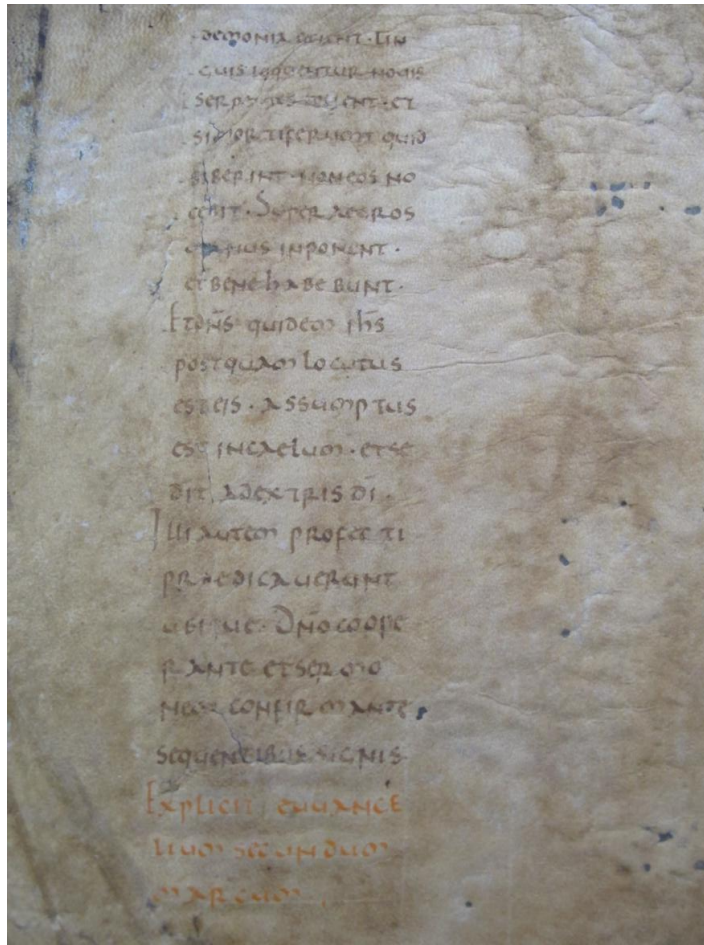 demonia eicient · lin
guis loquentur nouis
serpentes tollent · et
si mortiferum quid
biberint · non eos no
cebit · Super aegros
manus inponent ·
et bene habebunt ·
Et dn̄s quidem ih̄s
postquam locutus
est eis · assumptus
est in caelum · et se
dit ad extris dī ·
Illi autem profecti
praedicauerunt
ubique · Dn̄o coope
rante et sermo
nem confirmante
sequentibus signis
Explicit euange
lium secundum
marcum ·